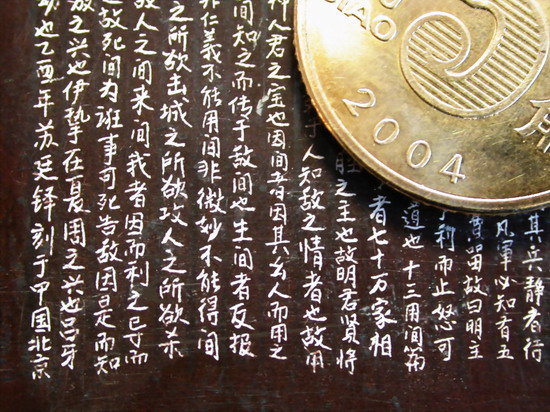 其兵静者待
凡軍必知有五
留故曰明主
利而止怒可
道也十三用间篇
者七十万家相
之主也故明君贤将
人知敌之情者也故用
神人君之宝也因间者因其乡人而用之
间知之而传于敌间也生间者反报
非仁義不能用间非微妙不能得间
之所欲击城之所欲攻人之所欲杀
人之间来间我者因而利之
故死间为事可死告敌因是而知
之兴也伊挚在夏周之兴也吕牙
也乙酉年苏廷铎刻于中国北京
JIAO
5
角
2004